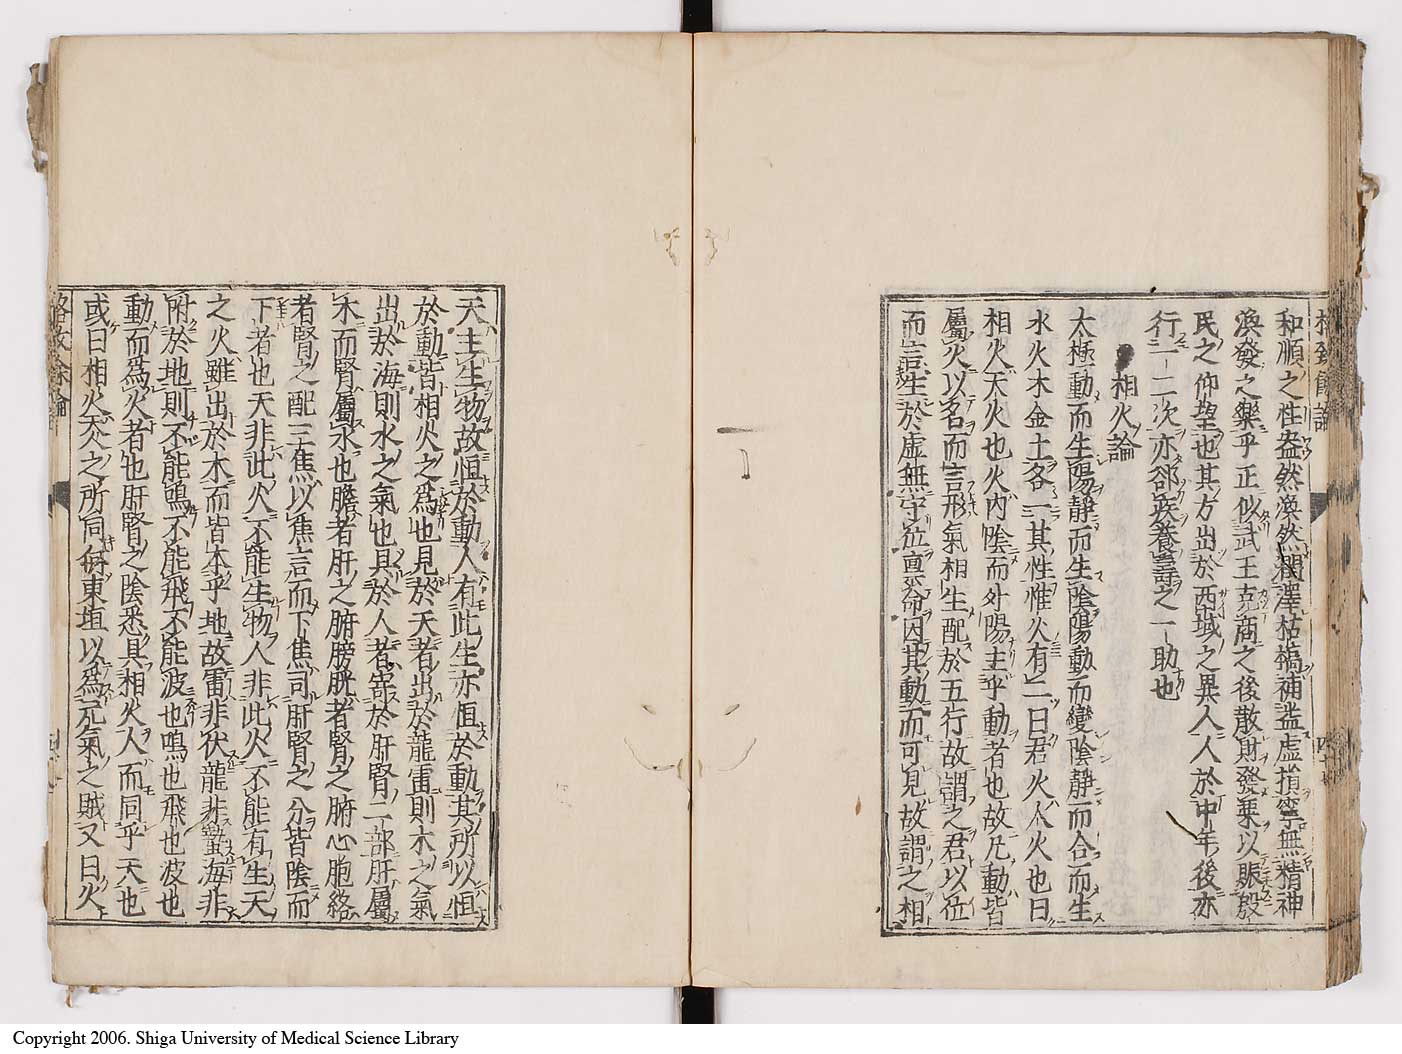 格致餘論
和順之性盎然渙然潤澤枯槁補益虛損寧無精神
渙發之樂乎正似武王克商之後散財發粟以賑殷
民之仰望也其方出於西域之異人人於中年後亦
行一二次亦却疾養壽之一助也
相火論
太極動而生陽靜而生陰陽動而變陰靜而合而生
水火木金土各一其性惟火有二曰君火人火也曰
相火天火也火內陰而外陽主乎動者也故凡動皆
屬火以名而言形氣相生配於五行故謂之君以位
而言生於虛無守位稟命因其動而可見故謂之相
天主生物故恒於動人有此生亦恒於動其所以恒
於動皆相火之爲也見於天者出於龍雷則木之氣
出於海則水之氣也具於人者寄於肝腎二部肝屬
木而腎屬水也膽者肝之腑膀胱者腎之腑心胞絡
者腎之配三焦以焦言而下焦司肝腎之分皆陰而
下者也天非此火不能生物人非此火不能有生天
之火雖出於木而皆本乎地故雷非伏龍非蟄海非
附於地則不能鳴不能飛不能波也鳴也飛也波也
動而爲火者也肝腎之陰悉具相火人而同乎天也
或曰相火天人之所同何東垣以爲元氣之賊又曰火
格致餘論
Copyright 2006. Shiga University of Medical Science Library